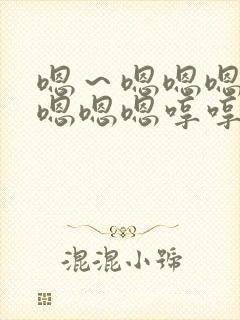 嗯～嗯嗯嗯
嗯嗯嗯哼哼
混混小號